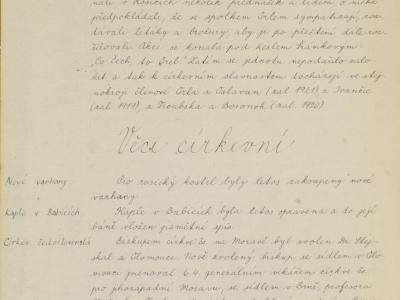 nali v Rosicích několik přednášek a lidem, o nichž
předpokládali, že se spolkem Orlem sympatisují, roz
dávali letáky a brožury, aby je po přečtení dále roz-
šiřovali. Akce se konala pod heslem Šrámkovým:
"Co Čech, to Orel." Zatím se jednotu nepodařilo zalo-
žit a tak k církevním slavnostem docházejí ve stej-
nokroji členové Orla z Oslavan (zal. 1921) z Ivančic
(zal. 1919), z Troubska a Bosonoh (zal. 1920).
Věci církevní
Nové varhany. Pro rosický kostel byly letos zakoupeny nové
varhany.
Kaple v Babicích Kaple v Babicích byla letos opravena a do její
báně vložen pamětní spis.
Církev českoslovanská Biskupem církve čs. na Moravě byl zvolen Dr. Stej-
skal z Olomouce. Nově zvolený biskup se sídlem v Olo-
mouci jmenoval 6.4. generálním vikářem církve čs.
pro jihozápadní Moravu, se sídlem v Brně, profesora